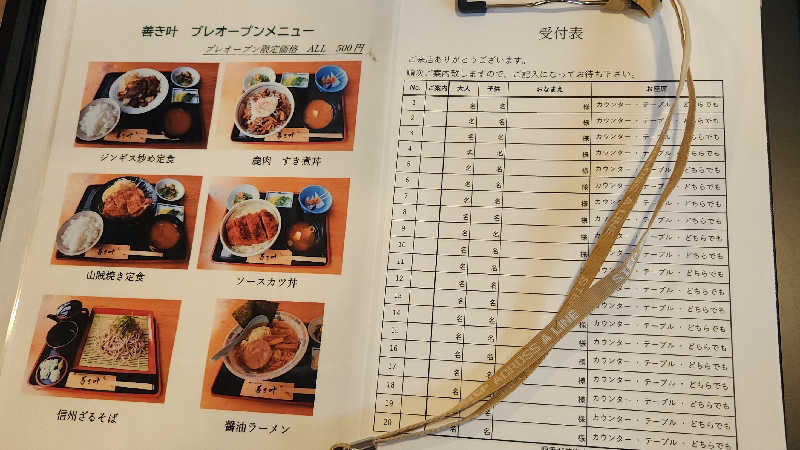 善き叶 プレオープンメニュー
プレオープン限定価格 ALL 500円
ジンギス炒め定食
鹿肉 すき煮丼
山賊焼き定食
ソースカツ丼
信州ざるそば
醤油ラーメン
受付表
ご来店ありがとうございます。
順次ご案内致しますので、ご記入になってお待ち下さい。
No. ご案内 大人 子供 おなまえ お座席
1 名 名 様 カウンター ・ テーブル ・ どちらでも
2 名 名 様 カウンター ・ テーブル ・ どちらでも
3 名 名 様 カウンター ・ テーブル ・ どちらでも
4 名 名 様 カウンター ・ テーブル ・ どちらでも
5 名 名 様 カウンター ・ テーブル ・ どちらでも
6 名 名 様 カウンター ・ テーブル ・ どちらでも
7 名 名 様 カウンター ・ テーブル ・ どちらでも
8 名 名 様 カウンター ・ テーブル ・ どちらでも
9 名 名 様 カウンター ・ テーブル ・ どちらでも
10 名 名 様 カウンター ・ テーブル ・ どちらでも
11 名 名 様 カウンター ・ テーブル ・ どちらでも
12 名 名 様 カウンター ・ テーブル ・ どちらでも
13 名 名 カウンター ・ テーブル ・ どちらでも
14 名 名 カウンター ・ テーブル ・ どちらでも
15 名 名 様 カウンター ・ テーブル ・ どちらでも
16 名 名 様 カウンター ・ テーブル ・ どちらでも
17 名 様 カウンター ・ テーブル ・ どちらでも
18 名 様 カウンター ・ テーブル ・ どちらでも
19 名 様 カウンター ・ テーブル ・ どちらでも
20 名 名 様 カウンター ・ テーブル ・ どちらでも
ACROSS A LINE